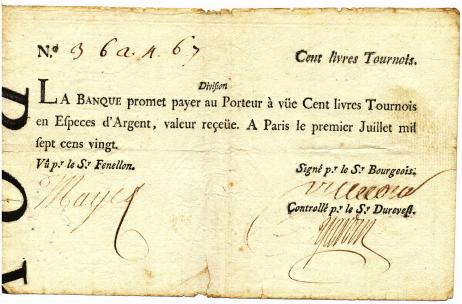 N.º 3 6 a. 4. 6 7 Cent livres Tournois.
Division
LA BANQUE promet payer au Porteur à vüe Cent livres Tournois
en Especes d'Argent, valeur reçeüe. A Paris le premier Juillet mil
sept cens vingt.
Vû p.r le S.r Fenellon. Signé p.r le S.r Bourgeois.
Controllé p.r le S.r Durevest.